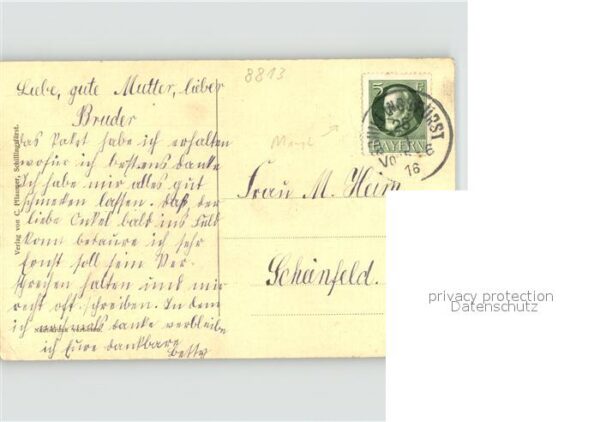 8813
Liebe, gute Mutter, lieber
Bruder
Das Paket habe ich erhalten
wofür ich bestens danke
Ich habe mir alles gut
schmecken lassen. Daß der
liebe Onkel bald ins Feld
kommt bedaure ich sehr
Ernst soll sein Ver-
sprechen halten und mir
recht oft schreiben. In dem
ich nochmals danke verbleibe
ich Eure dankbare
Betty
Verlag von C. Pflaumer, Schillingsfürst.
5
BAYERN
16
Frau M. Heim
Scheinfeld.
privacy protection
Datenschutz